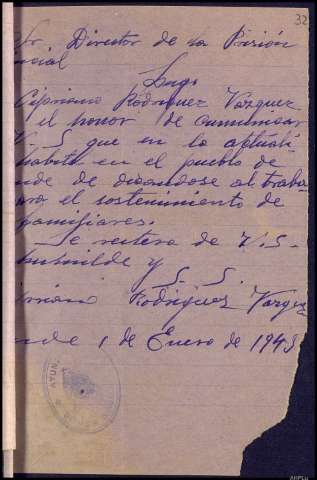 32
Sr. Director de la Prisión
cial
Lugo
Cipriano Rodriguez Vazquez
el honor de comunicar
V S que en la aptuali
habita en el pueblo de
nde de dicandose al traba
ara el sostenimiento de
familiares.
Se reitera de V. S.
humilde y S. S.
priano Rodriguez Vazquez
nde 1 de Enero de 1943
AYUN